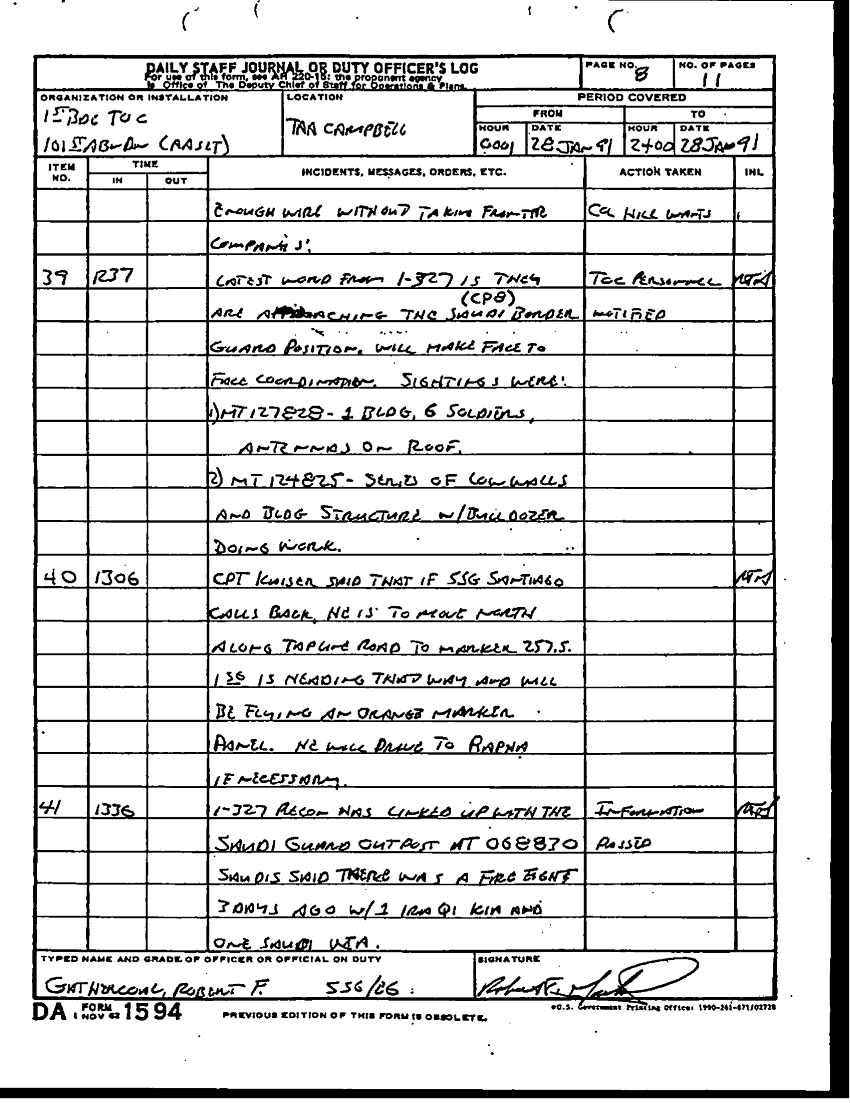 DAILY STAFF JOURNAL OR DUTY OFFICER'S LOG
For use of this form, see AR 220-15; the proponent agency
is Office of The Deputy Chief of Staff for Operations & Plans.
PAGE NO. 8
NO. OF PAGES 11
ORGANIZATION OR INSTALLATION
1ST BDE TOC
101ST ABN DIV (AASLT)
LOCATION
TAA CAMPBELL
PERIOD COVERED
FROM TO
HOUR DATE HOUR DATE
0001 28 JAN 91 2400 28 JAN 91
ITEM NO. TIME IN OUT INCIDENTS, MESSAGES, ORDERS, ETC. ACTION TAKEN INL
ENOUGH WIRE WITHOUT TAKING FROM THE COL HILL WANTS
COMPANIES'.
39 1237 LATEST WORD FROM 1-327 IS THEY TOC PERSONNEL
(CP8)
ARE APPROACHING THE SAUDI BORDER NOTIFIED
GUARD POSITION, WILL MAKE FACE TO
FACE COORDINATION. SIGHTINGS WERE:
1) MT127828 - 1 BLDG, 6 SOLDIERS,
ANTENNAS ON ROOF.
2) MT 124825 - SERIES OF LOW WALLS
AND BLDG STRUCTURE W/BULLDOZER
DOING WORK.
40 1306 CPT KAISER SAID THAT IF SSG SANTIAGO
CALLS BACK, HE IS TO MOVE NORTH
ALONG TAPLINE ROAD TO MARKER 257.5.
1SG IS HEADING THAT WAY AND WILL
BE FLYING AN ORANGE MARKER
PANEL. HE WILL DRIVE TO RAFHA
IF NECESSARY.
41 1336 1-327 RECON HAS LINKED UP WITH THE INFORMATION
SAUDI GUARD OUTPOST MT 068870 PASSED
SAUDIS SAID THERE WAS A FIRE FIGHT
3 DAYS AGO W/1 IRAQI KIA AND
ONE SAUDI WIA.
TYPED NAME AND GRADE OF OFFICER OR OFFICIAL ON DUTY
GATHERCOAL, ROBERT F. SSG/E6
SIGNATURE
DA FORM 1 NOV 62 1594
PREVIOUS EDITION OF THIS FORM IS OBSOLETE.
*U.S. Government Printing Office: 1990-261-871/02728